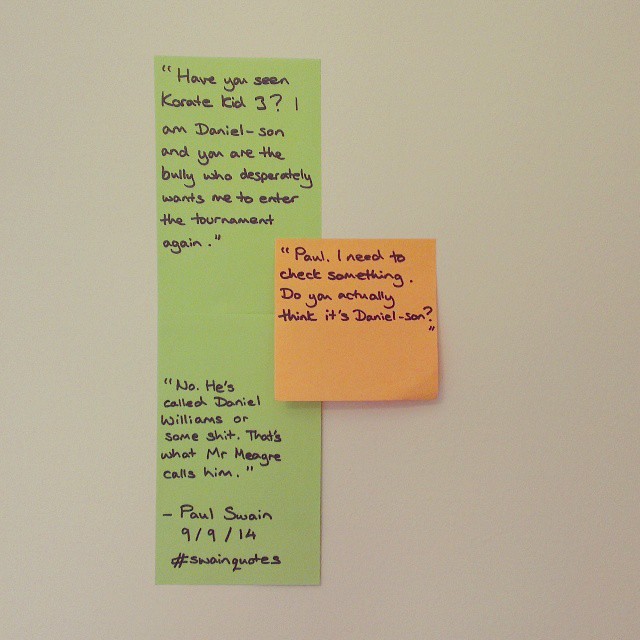 "Have you seen
Karate Kid 3? I
am Daniel-son
and you are the
bully who desperately
wants me to enter
the tournament
again."
"Paul. I need to
check something.
Do you actually
think it's Daniel-son?
"
"No. He's
called Daniel
Williams or
some shit. That's
what Mr Meagre
calls him."
- Paul Swain
9/9/14
#swainquotes